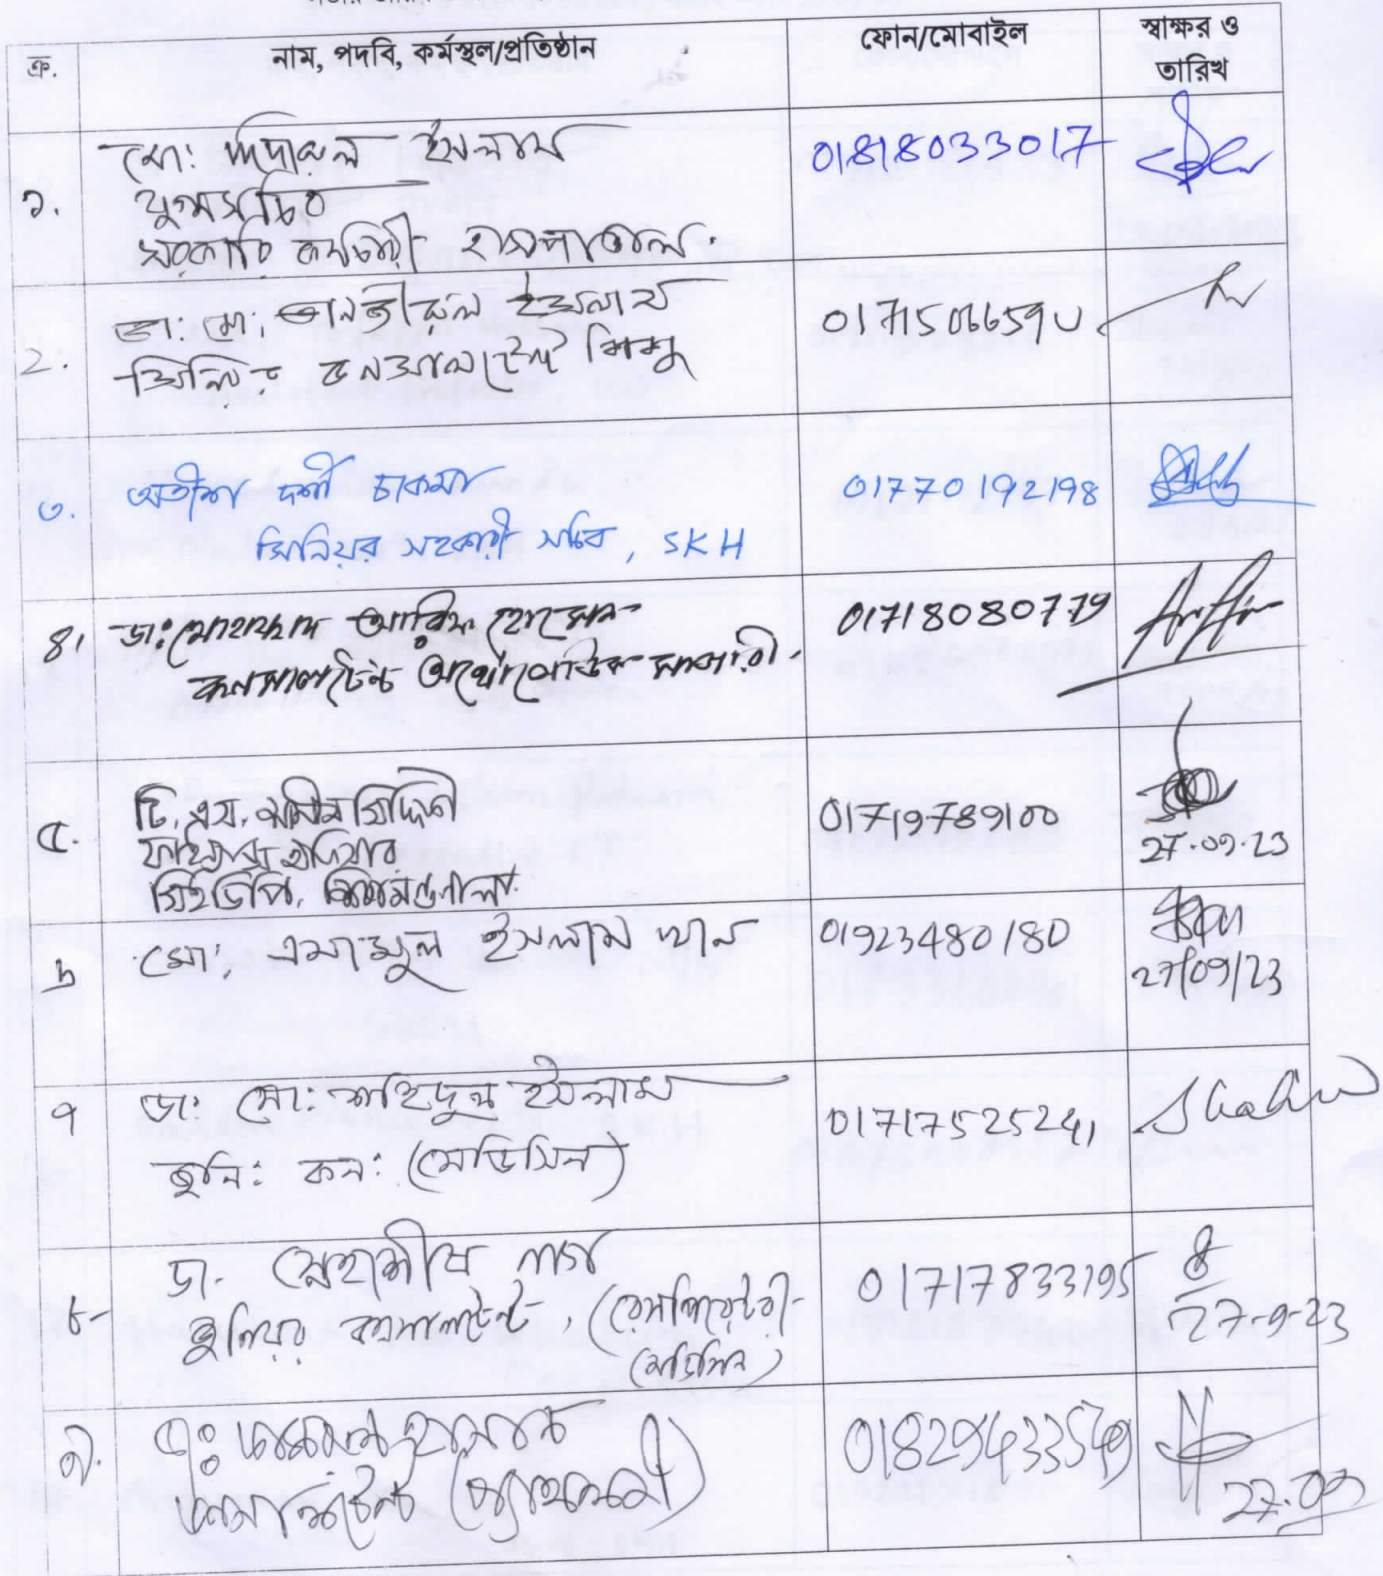 ক্র.
নাম, পদবি, কর্মস্থল/প্রতিষ্ঠান
ফোন/মোবাইল
স্বাক্ষর ও
তারিখ
১.
মো: দিদারুল ইসলাম
যুগ্মসচিব
সরকারি কর্মচারী হাসপাতাল
01818033017
2.
ডা: মো: তানভীরুল ইসলাম
সিনিয়র কনসালটেন্ট শিশু
৩.
অতীশ দর্শী চাকমা
সিনিয়র সহকারী সচিব, SKH
01770192198
৪।
ডা: মোহাম্মদ আরিফ হোসেন
কনসালটেন্ট অর্থোপেডিক সার্জারী
01718080779
৫.
সিদ্দিকী
01719789100
27.09.23
৬
মো: এনামুল ইসলাম খান
01923480180
27/09/23
৭
ডা: মো: শহিদুল ইসলাম
জুনি: কন: (মেডিসিন)
01717525241
৮
ডা. স্নেহাশীষ নাগ
জুনিয়র কনসালটেন্ট, (রেসপিরেটরী
মেডিসিন)
01717833195
27-9-23
৯.
ইসলাম
কনসালটেন্ট (প্যাথলজী)
27.09